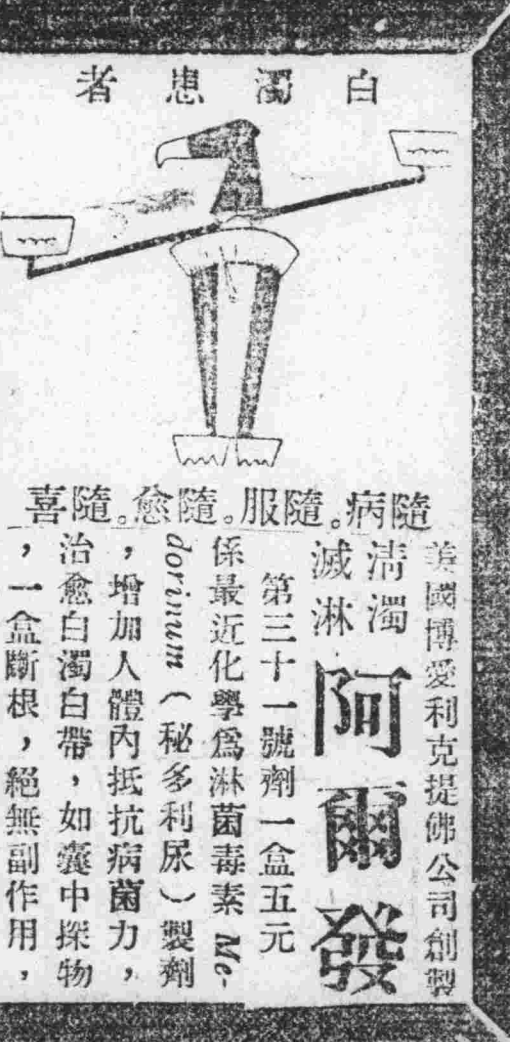 白濁患者
隨病。隨服。隨愈。隨喜
美國博愛利克提佛公司創製
清濁
滅淋
阿爾發
第三十一號劑一盒五元
係最近化學爲淋菌毒素 Me-
dorinum（秘多利尿）製劑
，增加人體內抵抗病菌力，
治愈白濁白帶，如囊中探物
，一盒斷根，絕無副作用，